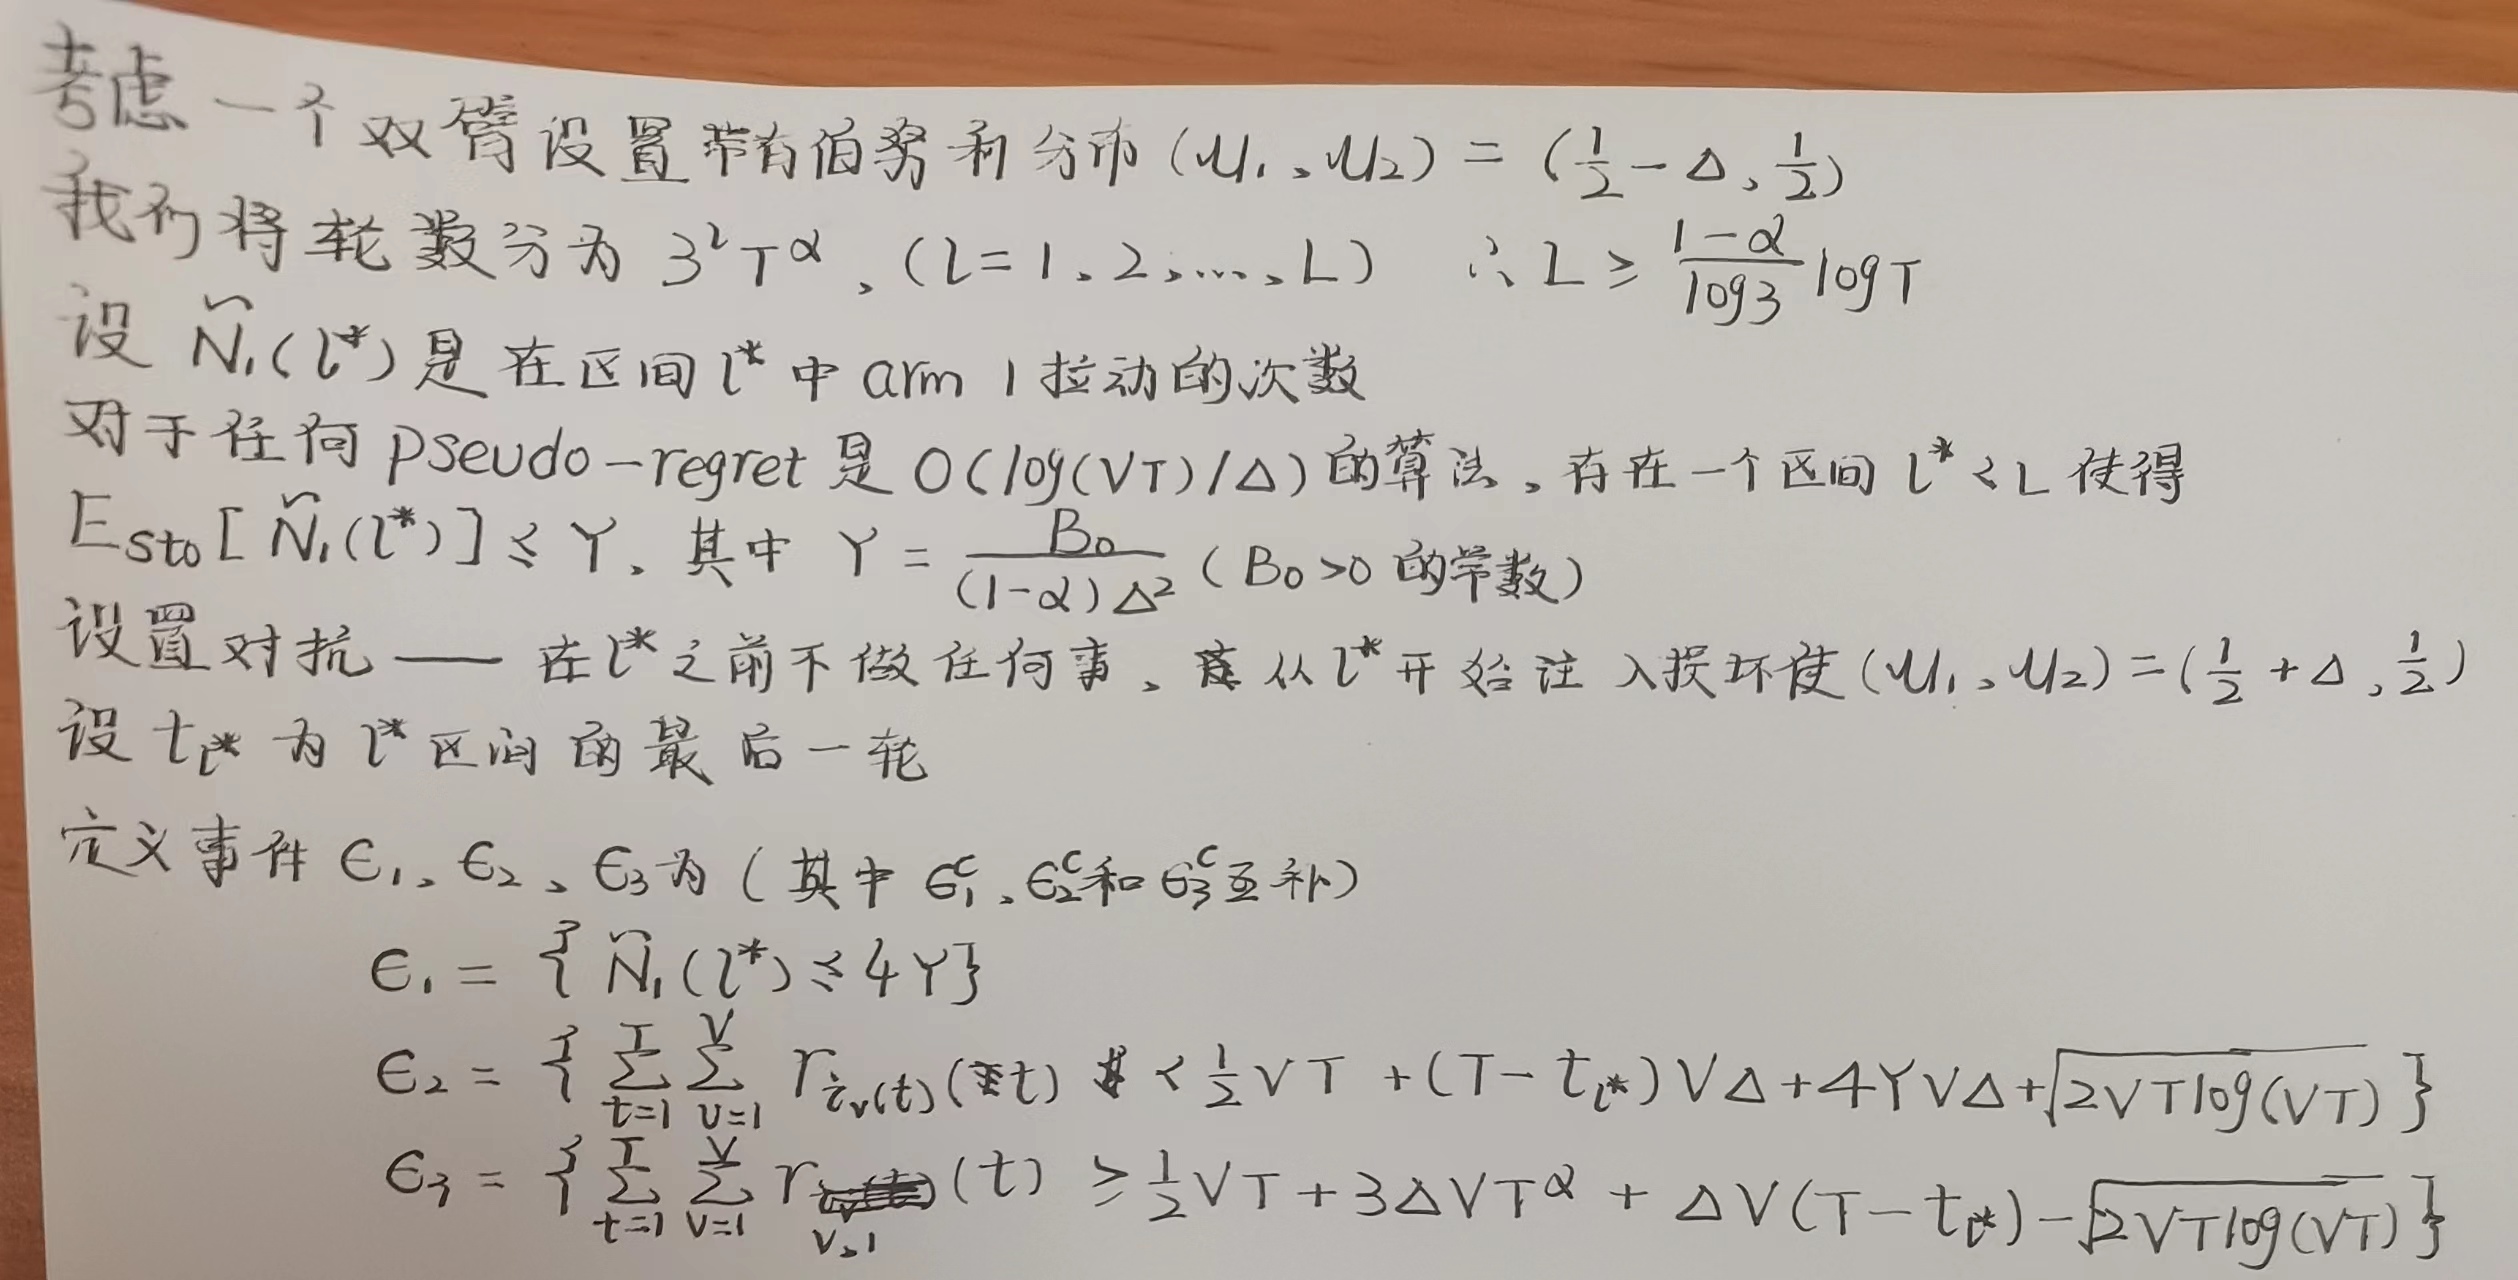 考虑一个双臂设置带有伯努利分布(μ₁、μ₂) = (1/2 - Δ、1/2)
我们将轮数分为 3^l T^α、(l=1、2、...、L) ∴ L ≥ (1-α)/log3 logT
设 Ñ₁(l*)是在区间 l* 中 arm 1 拉动的次数
对于任何 pseudo-regret 是 O(log(VT)/Δ)的算法、存在一个区间 l* ≤ L 使得
E_sto[Ñ₁(l*)] ≤ Y、其中 Y = B₀/((1-α)Δ²) (B₀>0 的常数)
设置对抗 —— 在 l* 之前不做任何事、从 l* 开始注入损坏使(μ₁、μ₂)=(1/2 + Δ、1/2)
设 t_l* 为 l* 区间的最后一轮
定义事件 ϵ₁、ϵ₂、ϵ₃为 (其中 ϵ₁^c、ϵ₂^c和 ϵ₃^c互补)
ϵ₁ = {Ñ₁(l*) ≤ 4Y}
ϵ₂ = {∑_{t=1}^{T} ∑_{v=1}^{V} r_{i_v(t)}(t) < 1/2 VT + (T - t_l*)VΔ + 4YVΔ + √(2VTlog(VT))}
ϵ₃ = {∑_{t=1}^{T} ∑_{v=1}^{V} r_{v,1}(t) ≥ 1/2 VT + 3ΔVT^α + ΔV(T - t_l*) - √(2VTlog(VT))}